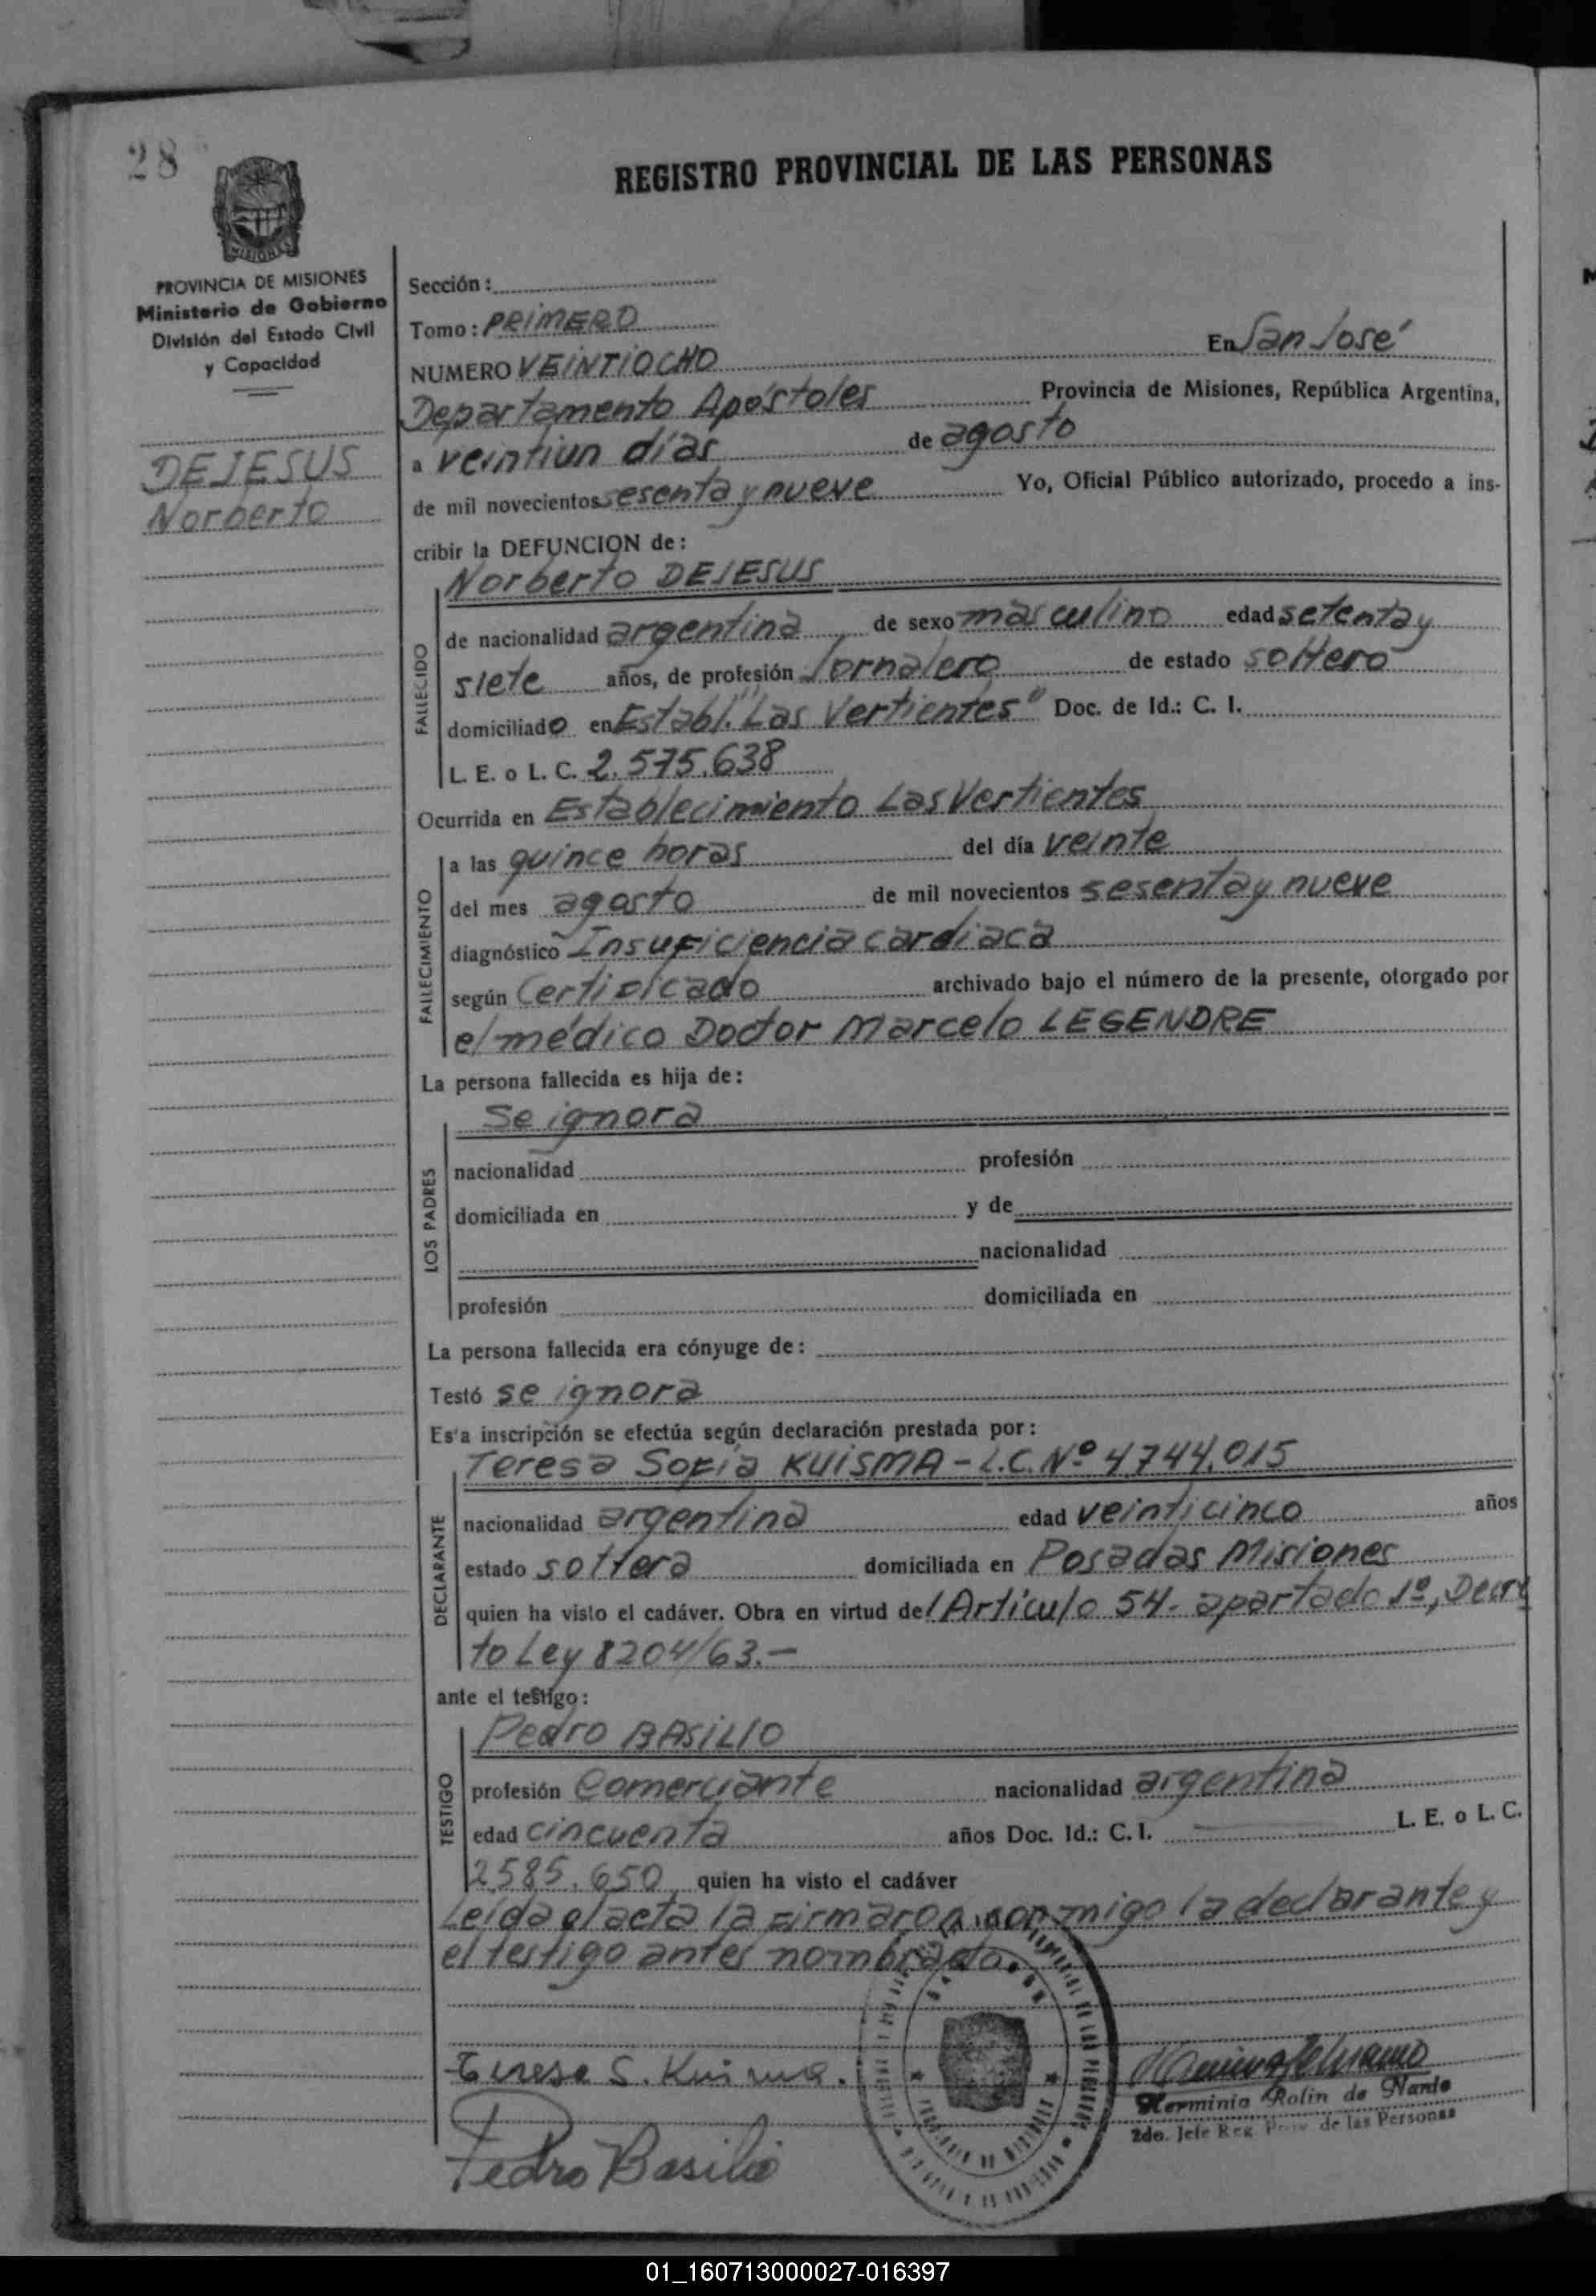 28
REGISTRO PROVINCIAL DE LAS PERSONAS
MISIONES
PROVINCIA DE MISIONES
Ministerio de Gobierno
División del Estado Civil
y Capacidad
DEJESUS
Norberto
Sección:
Tomo: PRIMERO
NUMERO VEINTIOCHO En San José
Departamento Apóstoles Provincia de Misiones, República Argentina,
a veintiun días de agosto
de mil novecientos sesenta y nueve Yo, Oficial Público autorizado, procedo a ins-
cribir la DEFUNCION de:
Norberto DEJESUS
FALLECIDO
de nacionalidad argentina de sexo masculino edad setenta y
siete años, de profesión Jornalero de estado soltero
domiciliado en Establ. "Las Vertientes" Doc. de Id.: C. I.
L. E. o L. C. 2.575.638
Ocurrida en Establecimiento Las Vertientes
FALLECIMIENTO
a las quince horas del día veinte
del mes agosto de mil novecientos sesenta y nueve
diagnóstico Insuficiencia cardiaca
según Certificado archivado bajo el número de la presente, otorgado por
el médico Doctor Marcelo LEGENDRE
La persona fallecida es hija de:
Se ignora
LOS PADRES
nacionalidad profesión
domiciliada en y de
nacionalidad
profesión domiciliada en
La persona fallecida era cónyuge de:
Testó se ignora
Es'a inscripción se efectúa según declaración prestada por:
Teresa Sofia KUISMA - L.C. Nº 4.744.015
DECLARANTE
nacionalidad argentina edad veinticinco años
estado soltera domiciliada en Posadas Misiones
quien ha visto el cadáver. Obra en virtud del Artículo 54- apartado 1º, Decre
to Ley 8204/63.-
ante el testigo:
Pedro BASILIO
TESTIGO
profesión Comerciante nacionalidad argentina
edad cincuenta años Doc. Id.: C. I. L. E. o L. C.
2585.650 quien ha visto el cadáver
Leída el acta la firmaron conmigo la declarante y
el testigo antes nombrado.
Teresa S. Kuisma.
Pedro Basilio
Herminia Rolin de Nanto
2do. Jefe Reg. Prov. de las Personas
01_160713000027-016397